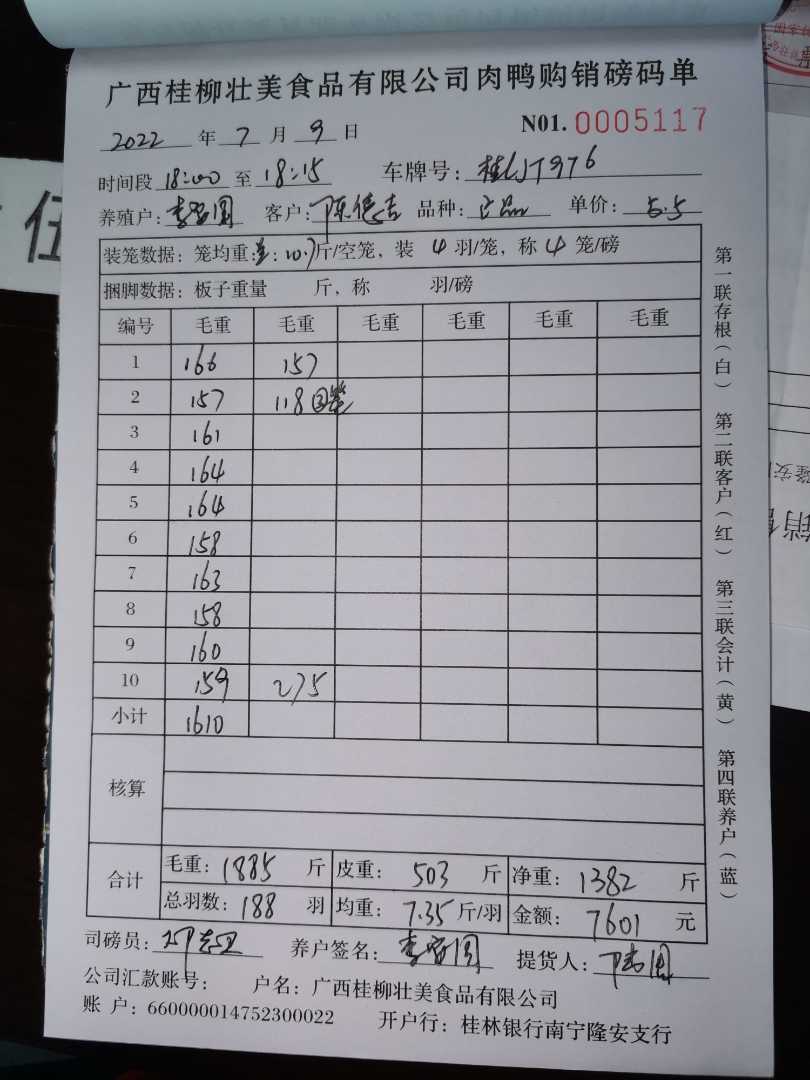 广西桂柳壮美食品有限公司肉鸭购销磅码单
2022 年 7 月 9 日 N01. 0005117
时间段 18:00 至 18:15 车牌号: 桂 T976
养殖户: 客户: 陈德吉 品种: 正品 单价: 5.5
装笼数据: 笼均重: 10.7 斤/空笼, 装 4 羽/笼, 称 4 笼/磅
捆脚数据: 板子重量 斤, 称 羽/磅
编号 毛重 毛重 毛重 毛重 毛重 毛重
1 166 157
2 157 118 回笼
3 161
4 164
5 164
6 158
7 163
8 158
9 160
10 159 275
小计 1610
核算
合计 毛重: 1885 斤 皮重: 503 斤 净重: 1382 斤
总羽数: 188 羽 均重: 7.35 斤/羽 金额: 7601 元
司磅员: 养户签名: 提货人:
公司汇款账号: 户名: 广西桂柳壮美食品有限公司
账 户: 660000014752300022 开户行: 桂林银行南宁隆安支行
第一联存根(白) 第二联客户(红) 第三联会计(黄) 第四联养户(蓝)
伍
隆安
销售